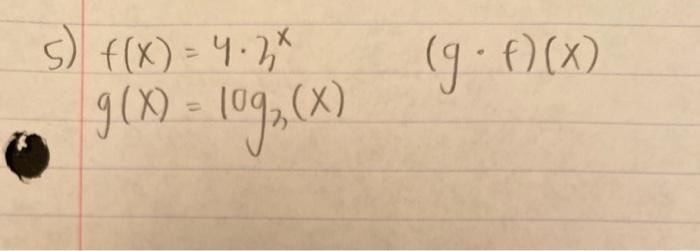 5) f(x) = 4·3ˣ (g·f)(x)
g(x) = log₃(x)